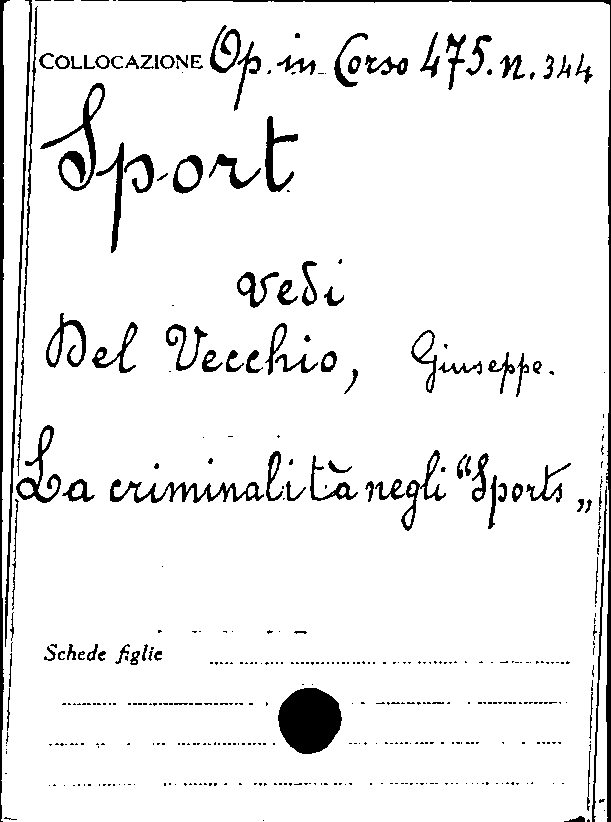 COLLOCAZIONE Op. in Corso 475. n. 344
Sport
vedi
Del Vecchio, Giuseppe.
La criminalità negli “Sports„
Schede figlie